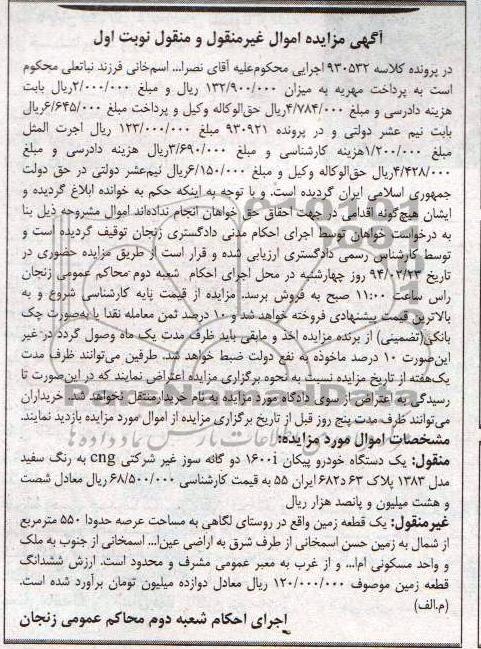 آگهی مزایده اموال غیرمنقول و منقول نوبت اول
در پرونده کلاسه ۹۳۰۵۳۲ اجرایی محکوم‌علیه آقای نصرا... اسم‌خانی فرزند نباتعلی محکوم
است به پرداخت مهریه به میزان ۱۳۲/۹۰۰/۰۰۰ ریال و مبلغ ۲/۰۰۰/۰۰۰ریال بابت
هزینه دادرسی و مبلغ ۴/۷۸۴/۰۰۰ریال حق‌الوکاله وکیل و پرداخت مبلغ ۶/۶۴۵/۰۰۰ریال
بابت نیم عشر دولتی و در پرونده ۹۳۰۹۲۱ مبلغ ۱۲۳/۰۰۰/۰۰۰ ریال اجرت المثل
مبلغ ۱/۲۰۰/۰۰۰هزینه کارشناسی و مبلغ ۳/۶۹۰/۰۰۰ریال هزینه دادرسی و مبلغ
۴/۴۲۸/۰۰۰ریال حق‌الوکاله وکیل و مبلغ ۶/۱۵۰/۰۰۰ ریال نیم‌عشر دولتی در حق دولت
جمهوری اسلامی ایران گردیده است. و با توجه به اینکه حکم به خوانده ابلاغ گردیده و
ایشان هیچ‌گونه اقدامی در جهت احقاق حق خواهان انجام نداده‌اند اموال مشروحه ذیل بنا
به درخواست خواهان توسط اجرای احکام مدنی دادگستری زنجان توقیف گردیده است و
توسط کارشناس رسمی دادگستری ارزیابی شده و قرار است از طریق مزایده حضوری در
تاریخ ۹۴/۰۲/۲۳ روز چهارشنبه در محل اجرای احکام شعبه دوم محاکم عمومی زنجان
راس ساعت ۱۱:۰۰ صبح به فروش برسد. مزایده از قیمت پایه کارشناسی شروع و به
بالاترین قیمت پیشنهادی فروخته خواهد شد و ۱۰ درصد ثمن معامله نقدا یا به‌صورت چک
بانکی(تضمینی) از برنده مزایده اخذ و مابقی باید ظرف مدت یک ماه وصول گردد در غیر
این‌صورت ۱۰ درصد ماخوذه به نفع دولت ضبط خواهد شد. طرفین می‌توانند ظرف مدت
یک‌هفته از تاریخ مزایده نسبت به نحوه برگزاری مزایده اعتراض نمایند که در این‌صورت تا
رسیدگی به اعتراض از سوی دادگاه مورد مزایده به نام خریدار منتقل نخواهد شد. خریداران
می‌توانند ظرف مدت پنج روز قبل از تاریخ برگزاری مزایده از اموال مورد مزایده بازدید نمایند.
مشخصات اموال مورد مزایده:
منقول: یک دستگاه خودرو پیکان ۱۶۰۰i دو گانه سوز غیر شرکتی cng به رنگ سفید
مدل ۱۳۸۳ پلاک ۶۳ د۶۸۲ ایران ۵۵ به قیمت کارشناسی ۶۸/۵۰۰/۰۰۰ریال معادل شصت
و هشت میلیون و پانصد هزار ریال
غیرمنقول: یک قطعه زمین واقع در روستای لگاهی به مساحت عرصه حدودا ۵۵۰ مترمربع
از شمال به زمین حسن اسمخانی از طرف شرق به اراضی عین‌ا... اسمخانی از جنوب به ملک
و واحد مسکونی ام‌ا... و از غرب به معبر عمومی مشرف و محدود است. ارزش ششدانگ
قطعه زمین موصوف ۱۲۰/۰۰۰/۰۰۰ ریال معادل دوازده میلیون تومان برآورد شده است.
(م.الف)
اجرای احکام شعبه دوم محاکم عمومی زنجان